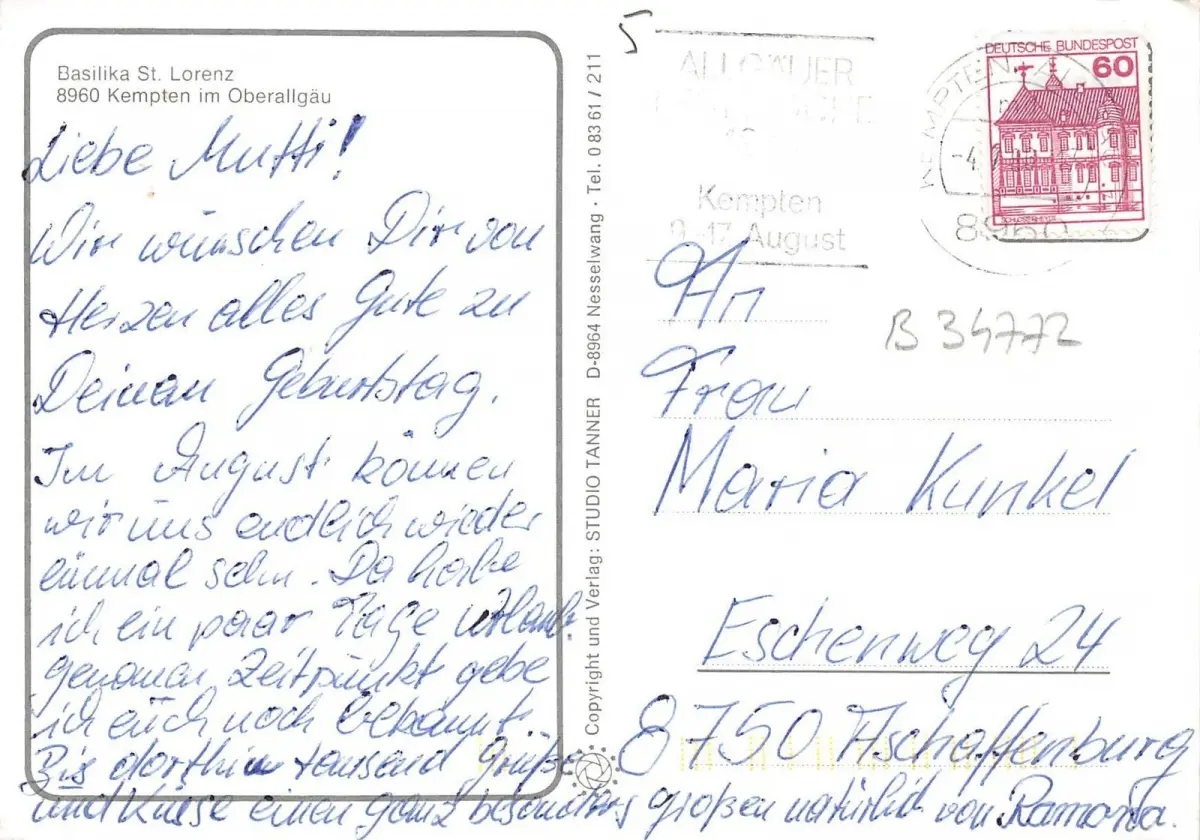 Basilika St. Lorenz
8960 Kempten im Oberallgäu
Liebe Mutti!
Wir wünschen Dir von
Herzen alles Gute zu
Deinem Geburtstag.
Im August können
wir uns endlich wieder
einmal sehn. Da habe
ich ein paar Tage Urlaub
genauen Zeitpunkt gebe
ich euch noch bekannt.
Bis dorthin tausend Grüße
und Küsse einen ganz besonders großen natürlich von Ramona.
Copyright und Verlag: STUDIO TANNER D-8964 Nesselwang · Tel. 0 83 61 / 211
5
ALLGÄUER
Kempten
9.-17. August
KEMPTEN
8960
DEUTSCHE BUNDESPOST
60
B 34772
An
Frau
Maria Kunkel
Eschenweg 24
8750 Aschaffenburg